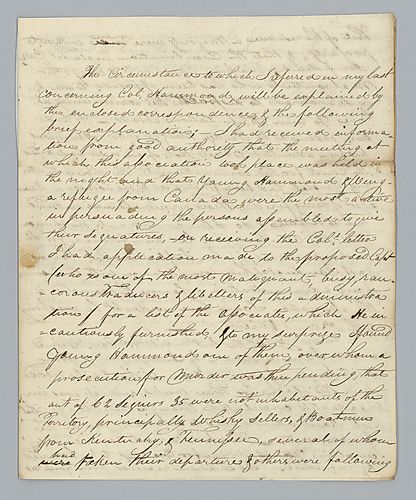 The Circumstance to which I referred in my last
concerning Col. Hammond will be explained by
the enclosed correspondence & the following
brief explanation, — I had received informa
tion from good authority that the meeting at
which this association took place was held in
the night and that Young Hammond &
a refugee from Canada were the most active
in persuading the persons assembled to give
their signatures, — on receiving the Col.s letter
I had application made to the proposed Capt
(who is one of the most malignant, busy ran-
corous traducers & libellers of this administra
tion) for a list of the associates, which He in-
cautiously furnished, & to my surprize I found
Young Hammond one of them, over whom a
prosecution for Murder was then pending, that
out of 62 signers 35 were not inhabitants of the
Territory, principally Whisky sellers, & Boatmen
from Kentucky & Tennessee, several of whom
had taken their departure & others were following